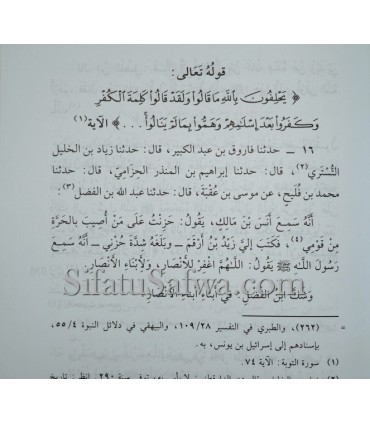 قولُهُ تَعَالى:
﴿ يَحْلِفُونَ بِاللَّهِ مَا قَالُوا وَلَقَدْ قَالُوا كَلِمَةَ الْكُفْرِ
وَكَفَرُوا بَعْدَ إِسْلَامِهِمْ وَهَمُّوا بِمَا لَمْ يَنَالُوا . . . ﴾ الآية (١)
١٦ ـ حدثنا فاروق بن عبد الكبير، قال: حدثنا زياد بن الخليل
التُّسْتَري (٢)، قال: حدثنا إبراهيم بن المنذر الحِزَامِيّ، قال: حدثنا
محمد بن فُلَيح، عن موسى بن عُقبَة، قال: حدثنا عبد الله بن الفضل (٣):
أَنَّهُ سَمِعَ أَنَسَ بْنَ مَالِكٍ، يَقُولُ: حَزِنْتُ عَلَى مَنْ أُصِيبَ بِالحَرَّةِ
مِنْ قَوْمِي (٤)، فَكَتَبَ إِلَيَّ زَيْدُ بْنُ أَرْقَمَ ـ وبَلَغَهُ شِدَّةُ حُزْنِي ـ أَنَّهُ سَمِعَ
رَسُولَ اللَّهِ ﷺ يَقُولُ: اللَّهُمَّ اغْفِرْ لِلأَنْصَارِ، وَلِأَبْنَاءِ الأَنْصَارِ.
وشَكَّ ابْنُ الفَضْلِ: في أَبْنَاءِ أَبْنَاءِ الأَنْصَارِ
SifatuSafwa.com
= (٢٦٢)، والطبري في التفسير ١٠٩/٢٨، والبيهقي في دلائل النبوة ٥٥/٤،
بإسنادهم إلى إسرائيل بن يونس، به.
(١) سورة التوبة: الآية ٧٤.
سنة ٢٩٠. انظر: تاريخ